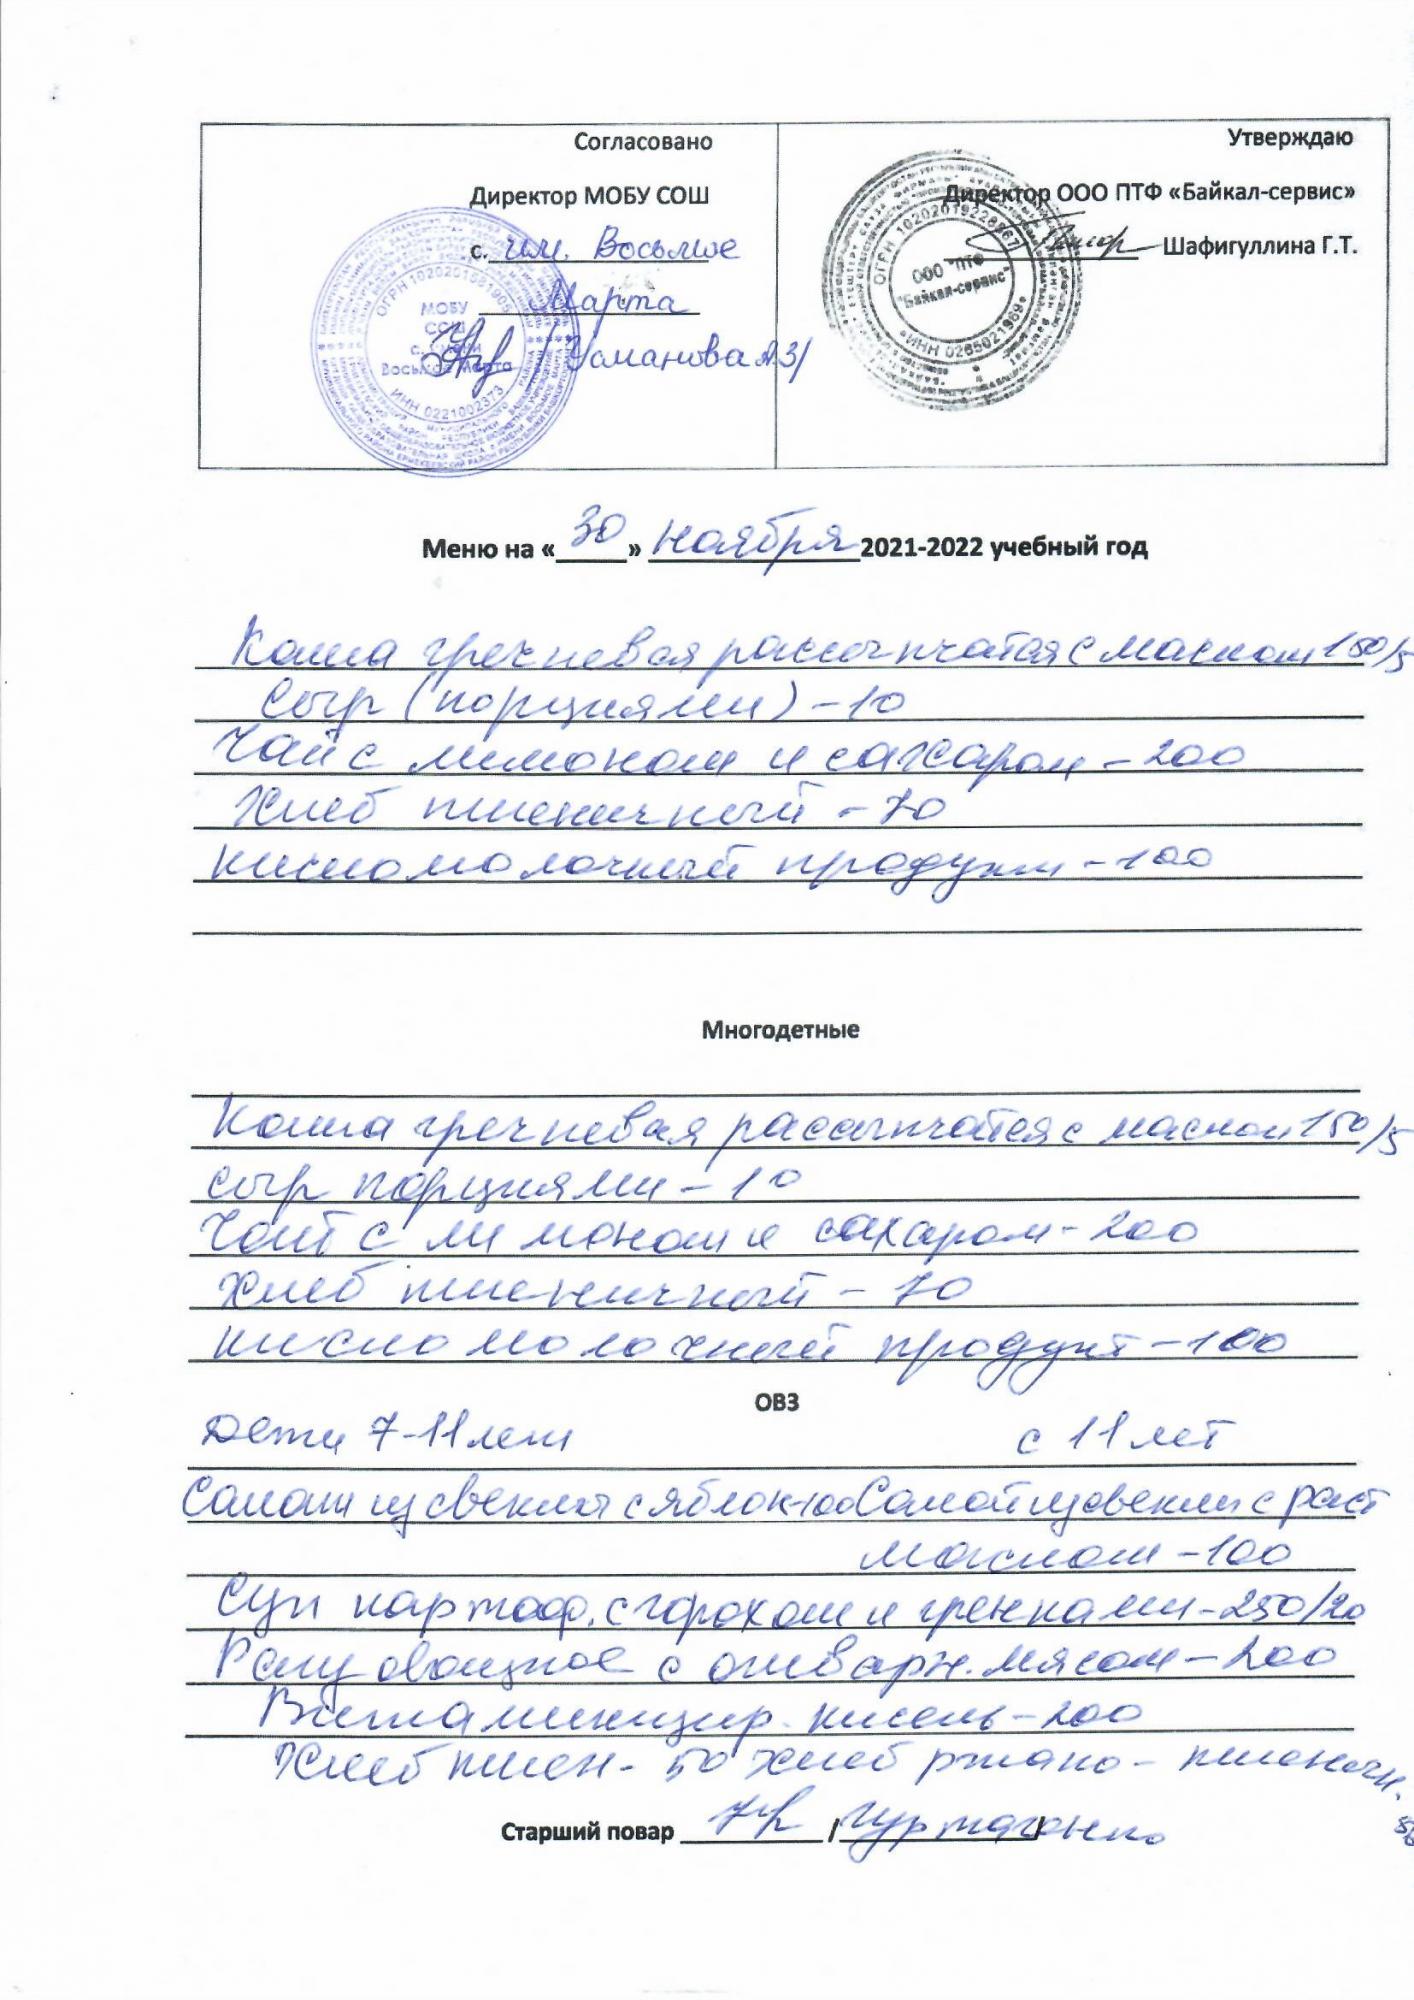 Согласовано
Директор МОБУ СОШ
с. им. Восьмое
Марта
/Усманова А.З/
МОБУ
СОШ
с. имени
Восьмое Марта
ОГРН 1020201881905
ИНН 0221002373
Утверждаю
Директор ООО ПТФ «Байкал-сервис»
Шафигуллина Г.Т.
ООО "ПТФ
"Байкал-сервис"
ИНН 0265021969
Меню на «30» ноября 2021-2022 учебный год
Каша гречневая рассыпчатая с маслом 150/5
Сыр (порциями) - 10
Чай с лимоном и сахаром - 200
Хлеб пшеничный - 70
кисломолочный продукт - 100
Многодетные
Каша гречневая рассыпчатая с маслом 150/5
сыр порциями - 10
Чай с лимоном и сахаром - 200
хлеб пшеничный - 70
кисломолочный продукт - 100
ОВЗ
Дети 7-11 лет с 11 лет
Салат из свеклы с яблок-100 Салат из свеклы с раст
маслом - 100
Суп картоф. с горохом и гренками - 250/20
Рагу овощное с отварн. мясом - 200
Витаминизир. кисель - 200
Хлеб пшен - 50 хлеб ржано - пшеничн.
Старший повар /